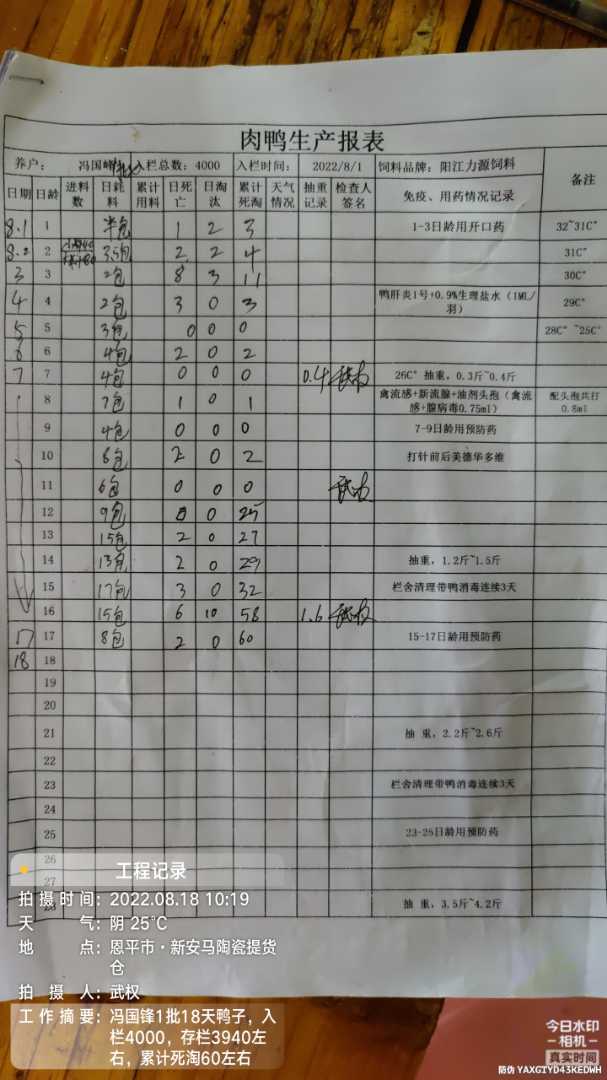 肉鸭生产报表
养户： 冯国峰 入栏总数：4000 入栏时间： 2022/8/1 饲料品牌：阳江力源饲料 备注
日期 日龄 进料数 日耗料 累计用料 日死亡 日淘汰 累计死淘 天气情况 抽重记录 检查人签名 免疫、用药情况记录
8.1 1 半包 1 2 3 1-3日龄用开口药 32~31C°
8.2 2 3.5包 2 2 4 31C°
3 3 2包 8 3 11 30C°
4 4 2包 3 0 3 鸭肝炎1号+0.9%生理盐水（1ML/羽） 29C°
5 5 3包 0 0 0 28C° ~25C°
6 6 4包 2 0 2
7 7 4包 0 0 0 0.4 武权 26C° 抽重，0.3斤~0.4斤
8 7包 1 0 1 禽流感+新流腺+油剂头孢（禽流感+腺病毒0.75ml） 配头孢共打0.8ml
9 4包 0 0 0 7-9日龄用预防药
10 6包 2 0 2 打针前后美德华多维
11 6包 0 0 0 武权
12 9包 0 0 25
13 15包 2 0 27
14 13包 2 0 29 抽重，1.2斤~1.5斤
15 17包 3 0 32 栏舍清理带鸭消毒连续3天
16 15包 6 10 58 1.6 武权
17 17 8包 2 0 60 15-17日龄用预防药
18 18
19
20
21 抽 重，2.2斤~2.6斤
22
23 栏舍清理带鸭消毒连续3天
24
25 23-25日龄用预防药
26
27
28 抽 重，3.5斤~4.2斤
工程记录
拍摄时间：2022.08.18 10:19
天 气：阴 25℃
地 点：恩平市·新安马陶瓷提货仓
拍 摄 人：武权
工作摘要：冯国锋1批18天鸭子，入栏4000，存栏3940左右，累计死淘60左右
今日水印
-相机-
真实时间
防伪 YAXGTYD43KEDWH